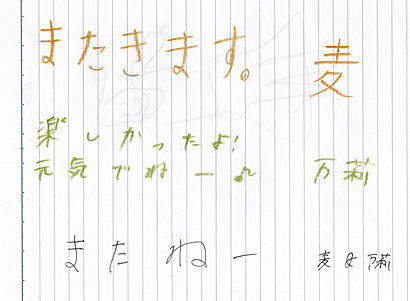 またきます。 麦
楽しかったよ!
元気でねー♪ 万莉
またねー 麦母万莉